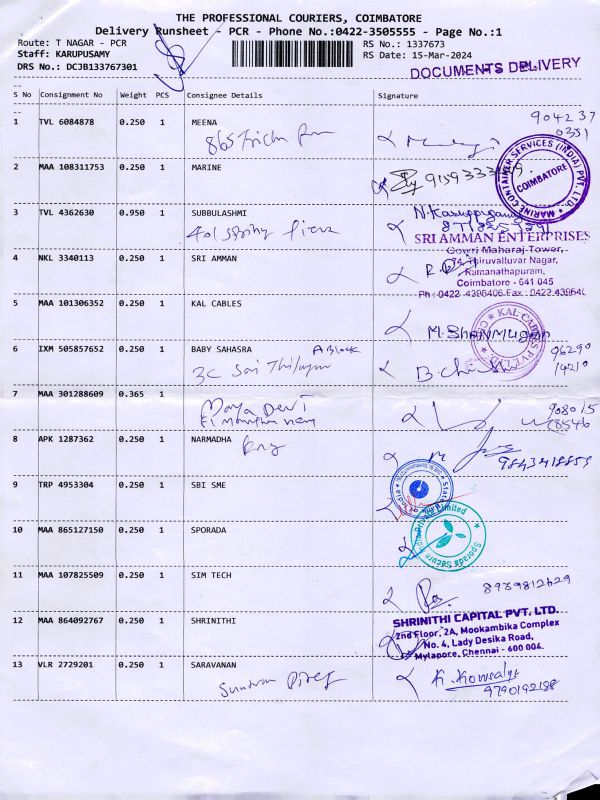 THE PROFESSIONAL COURIERS, COIMBATORE
Delivery Runsheet - PCR - Phone No.:0422-3505555 - Page No.:1
Route: T NAGAR - PCR
RS No.: 1337673
Staff: KARUPUSAMY
RS Date: 15-Mar-2024
DRS No.: DCJB133767301
DOCUMENTS DELIVERY
S No Consignment No Weight PCS Consignee Details Signature
1 TVL 6084878 0.250 1 MEENA
904237
0351
865
2 MAA 108311753 0.250 1 MARINE
MARINE CONTAINER SERVICES (INDIA) PVT. LTD.
COIMBATORE
3 TVL 4362630 0.950 1 SUBBULASHMI
401 spring
SRI AMMAN ENTERPRISES
Gowri Maharaj Tower,
Thiruvalluvar Nagar,
4 NKL 3340113 0.250 1 SRI AMMAN
Ramanathapuram,
Coimbatore - 641 045
Ph : 0422 4396406
5 MAA 101306352 0.250 1 KAL CABLES
M. SHANMUGAN
KAL CABLES PVT
6 IXM 505857652 0.250 1 BABY SAHASRA A Block
96290
14210
3C Sai
7 MAA 301288609 0.365 1
Maya Devi
98015
8 APK 1287362 0.250 1 NARMADHA
9843418859
9 TRP 4953304 0.250 1 SBI SME
10 MAA 865127150 0.250 1 SPORADA
Sporada Secure Private Limited
11 MAA 107825509 0.250 1 SIM TECH
8989812629
12 MAA 864092767 0.250 1 SHRINITHI
SHRINITHI CAPITAL PVT. LTD.
2nd Floor, 2A, Mookambika Complex
No. 4, Lady Desika Road,
Mylapore, Chennai - 600 004.
13 VLR 2729201 0.250 1 SARAVANAN
K. Kowsalya
9790192188